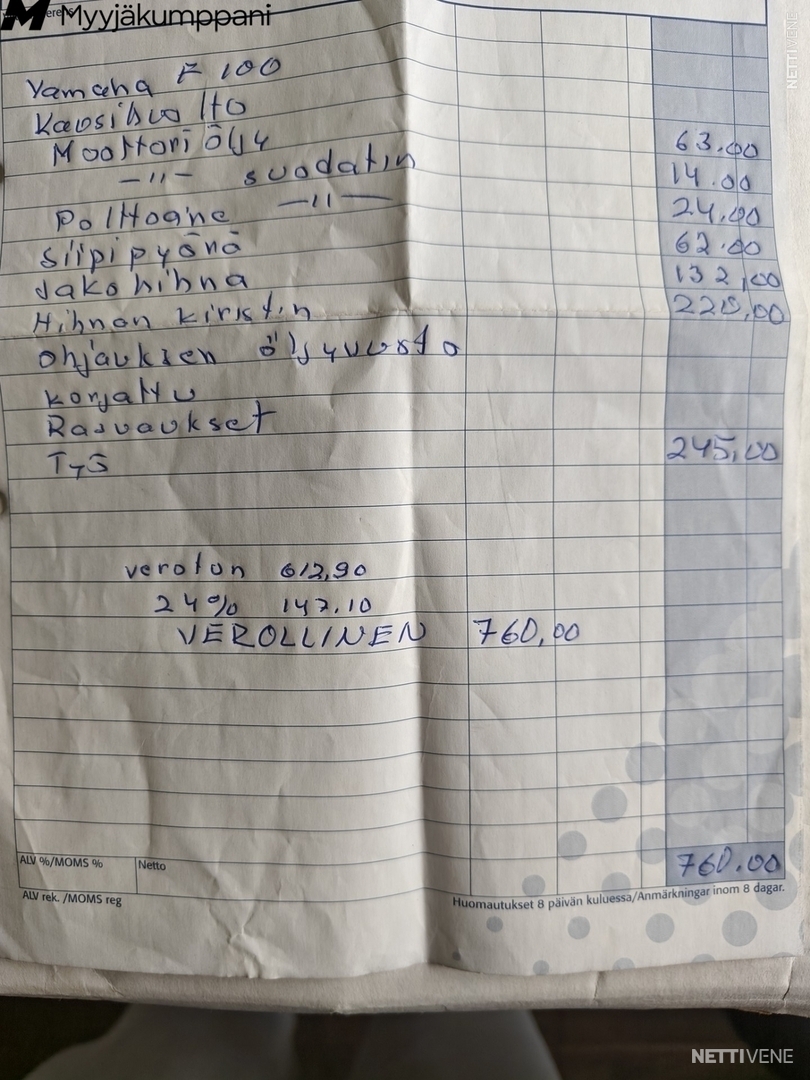 Myyjäkumppani
NETTIVENE
Yamaha F 100
Kausihuolto
Moottori öljy 63.00
-"- suodatin 14.00
Polttoaine -"- 24.00
Siipipyörä 62.00
Jakohihna 132,00
Hihnan kiristin 220,00
Ohjauksen öljyvuoto
korjattu
Rasvaukset
Työ 245,00
veroton 612,90
24% 147.10
VEROLLINEN 760,00
760.00
ALV %/MOMS % Netto
ALV rek. /MOMS reg
Huomautukset 8 päivän kuluessa/Anmärkningar inom 8 dagar.
NETTIVENE